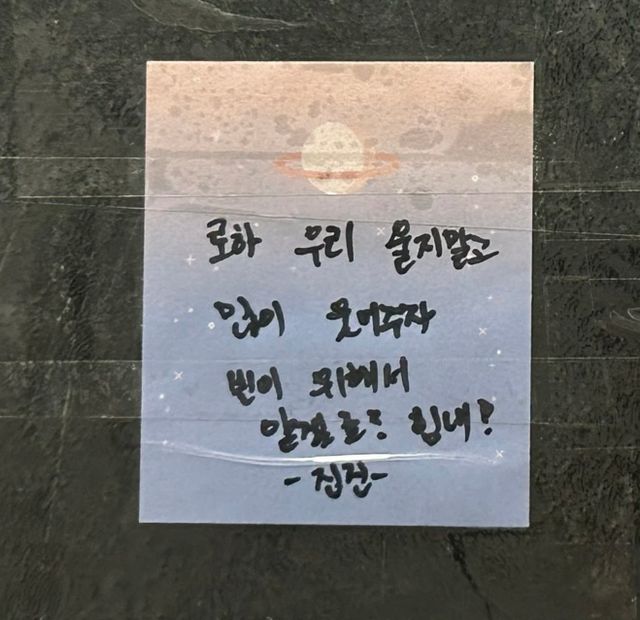 로하 우리 울지말고
많이 웃어주자
빈이 위해서
알겠로? 힘내!
-진진-